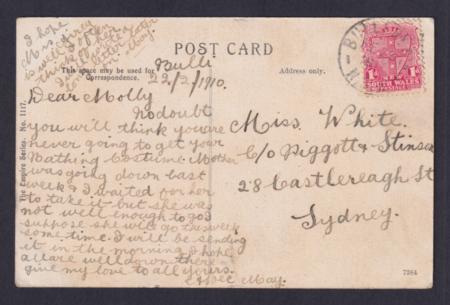 I hope
Mrs.
is well give
think of her often
letter later
on May.
POST CARD
This space may be used for
Correspondence.
Address only.
Bulli
22/2/1910.
Dear Molly
No doubt
you will think you are
never going to get your
Bathing Costume Mother
was going down last
week & I waited for her
to take it but she was
not well enough to go I
suppose she will go this week
some time. I will be sending
it in the morning I hope
all are well down there
give my love to all yours.
May.
Miss. White.
C/o Piggott & Stinson
28 Castlereagh St
Sydney.
The Empire Series. No. 1117.
7264
BULLI
SOUTH WALES
1d